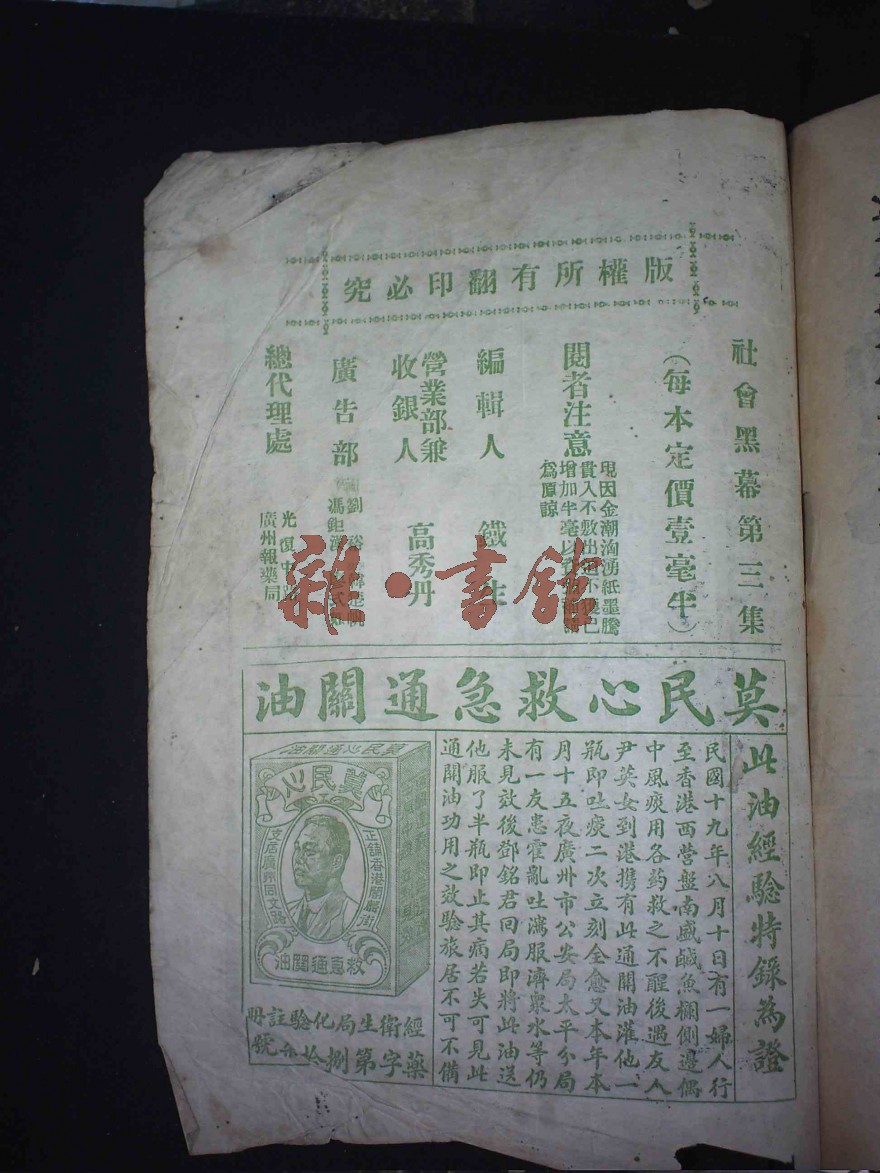 版權所有翻印必究
社會黑幕第三集
(每本定價壹毫半)
閱者注意
現因金潮洶湧紙墨騰
貴入不敷出
增加半毫以
為原諒
編輯人
鐵生
營業部兼
收銀人
高秀丹
廣告部
馮鉅
總代理處
光復中
廣州報業局
雜·書館
莫民心救急通關油
此油經驗特錄為證
民國十九年八月十日有一婦人行
至香港西營盤南盛鹹魚欄側邊偶
中風痰用各药救之不醒後遇友人
尹英女到港携有此通關油灌他一
瓶即吐痰二次立刻全愈又本年本
月十五夜廣州市公安局太平分局
有一友患霍亂吐瀉服濟衆水等仍
未見效後鄧銘君回局即將此油送
他服了半瓶即止其病若失可見此
通關油功用之效驗旅居不可不備
莫民心通關油
莫民心
正舖香港閣麟街
支店廣州同文路
救急通關油
經衛生局化驗註冊
藥字第捌拾叁號